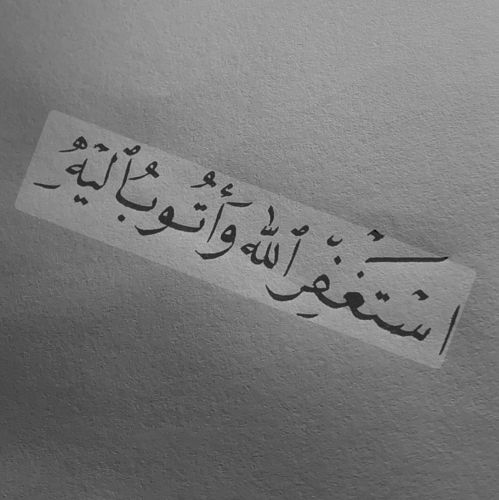 استغفر الله وأتوب اليه